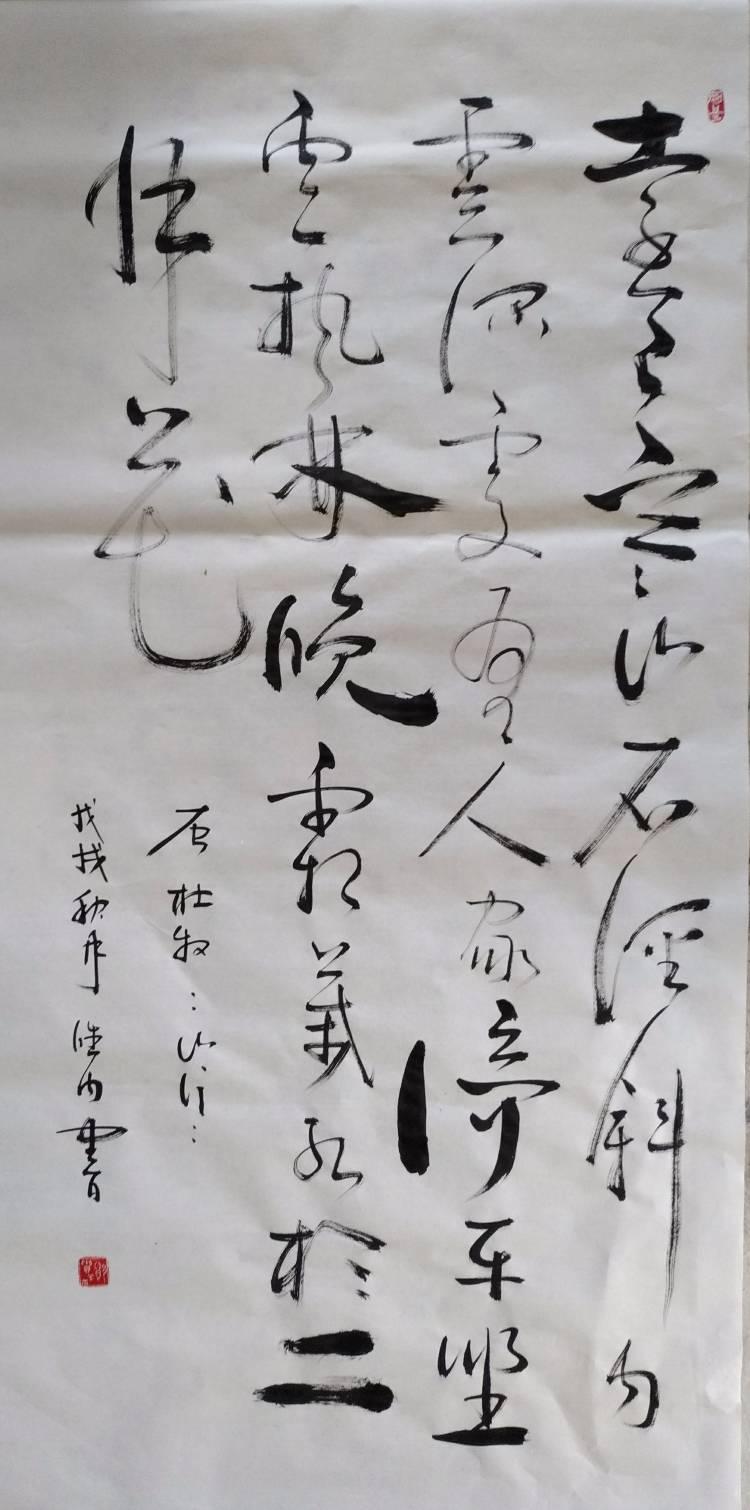 遠上寒山石徑斜白
雲深處有人家停車坐
愛楓林晚霜葉紅於二
月花
右杜牧:山行:
戊戌秋月 書